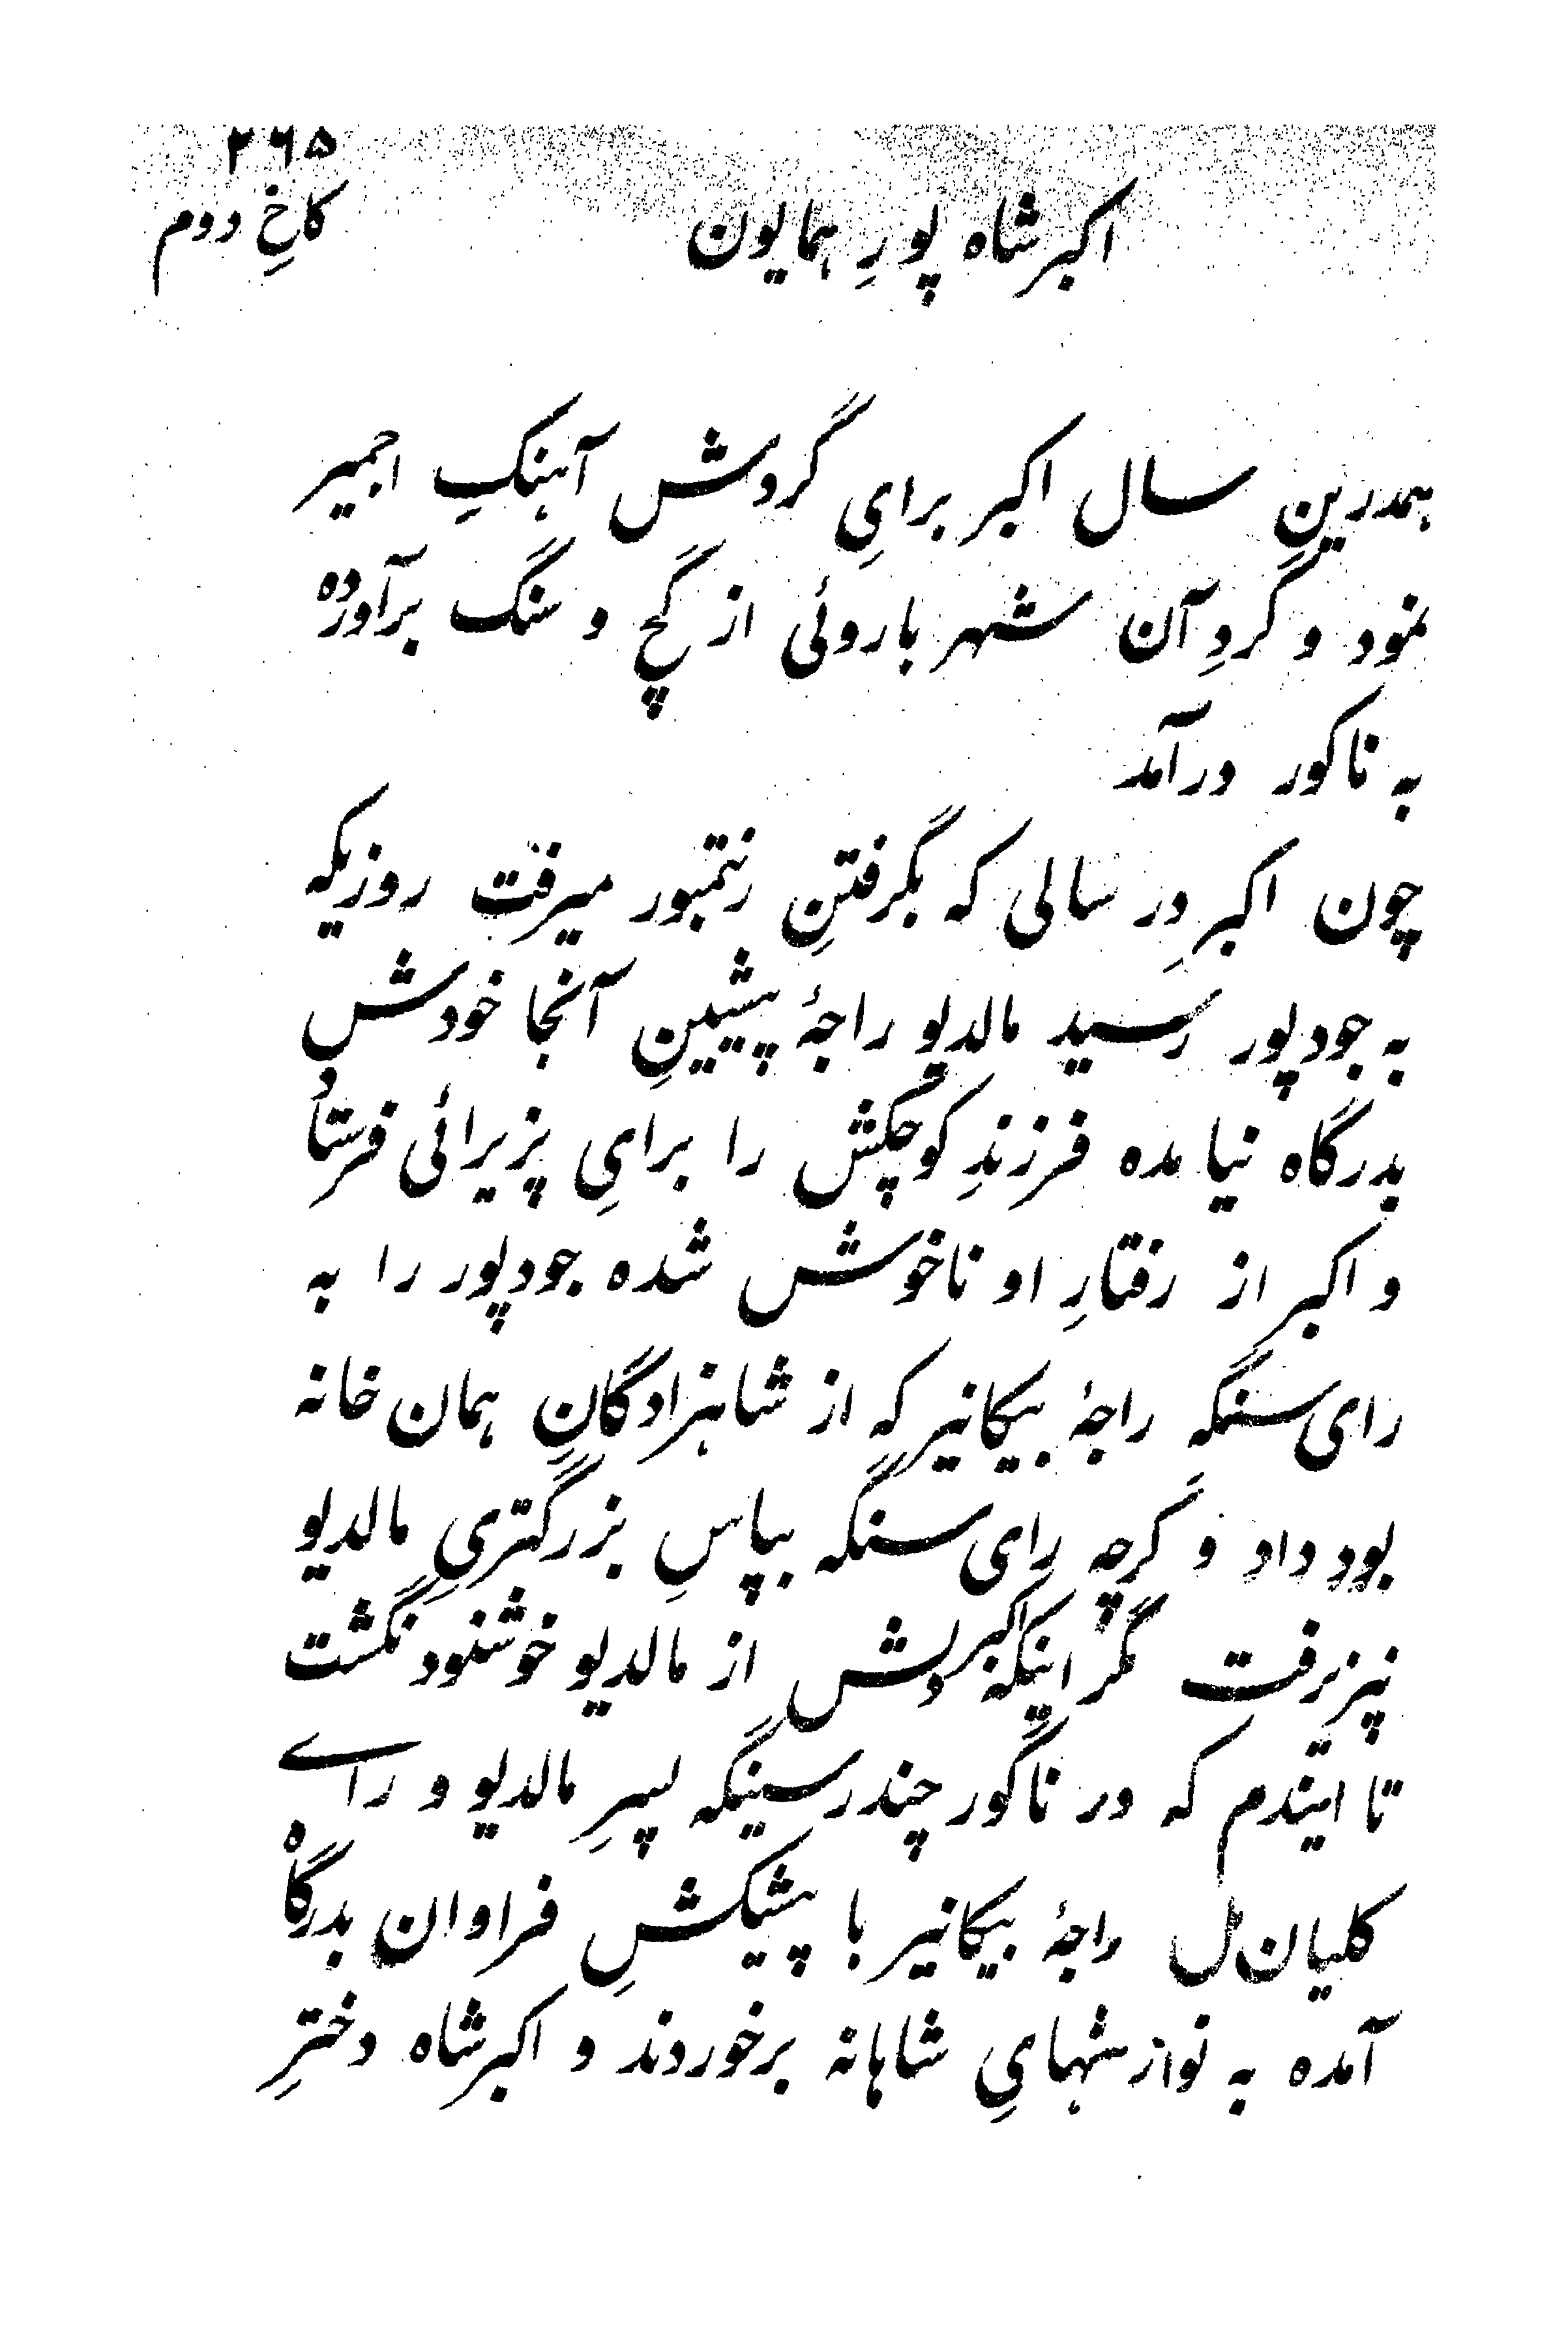 ۲۶۵
اکبرشاه پورِ همایون
کاخِ دوم
همدرین سال اکبر برایِ گردش آهنکِ اجمیر
نمود و گردِ آن شهر باروئی از گچ و سنگ برآورده
به ناکور درآمد
چون اکبر در سالی که بگرفتنِ رنتمبور میرفت روزیکه
به جودپور رسید مالدیو راجهٔ پیشینِ آنجا خودش
بدرگاه نیامده فرزندِ کوچکش را برایِ پزیرائی فرستاد
و اکبر از رفتارِ او ناخوش شده جودپور را به
رای‌سنگه راجهٔ بیکانیر که از شاهزادگانِ همان خانه
بود داد و گرچه رای‌سنگه بپاسِ بزرگتریِ مالدیو
نپزیرفت مگر اینکه اکبر دلش از مالدیو خوشنود نگشت
تا ایندم که در ناگور چندرسینگه پسرِ مالدیو و رای
کلیان‌مل راجهٔ بیکانیر با پیشکشِ فراوان بدرگاه
آمده به نوازشهایِ شاهانه برخوردند و اکبرشاه دخترِ